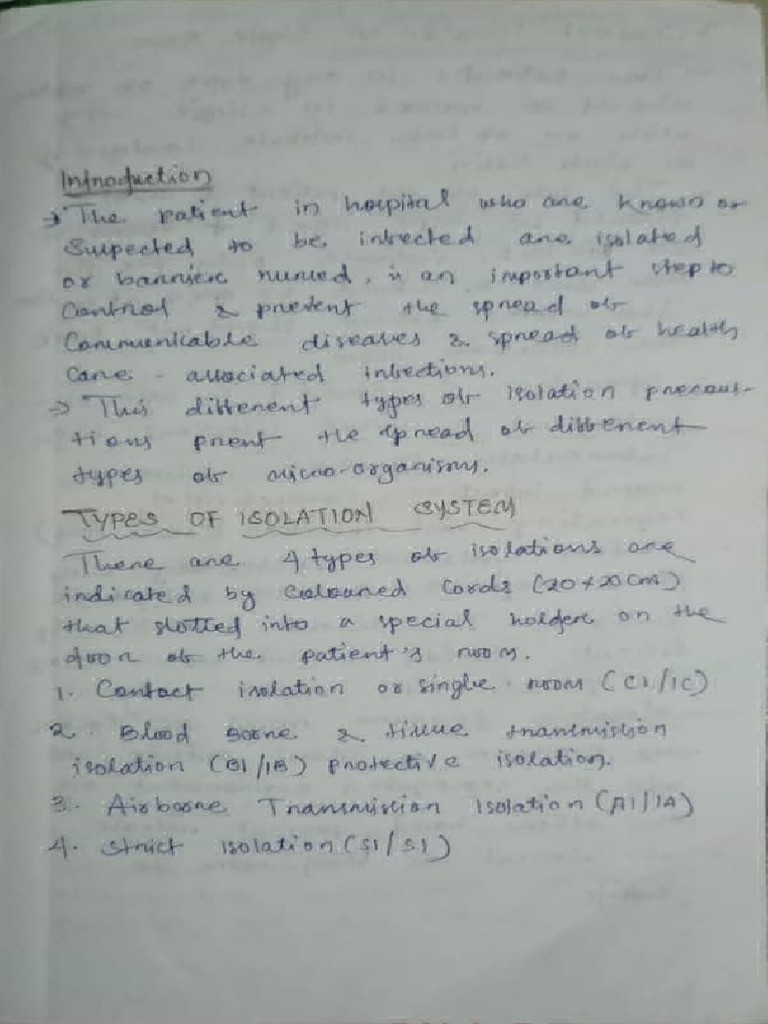 Introduction
→ The patient in hospital who are known or
suspected to be infected are isolated
or barrier nursed, is an important step to
control & prevent the spread of
Communicable diseases & spread of health
care - associated infections.
→ This different types of isolation precau-
tions prent the spread of different
types of micro-organisms.
TYPES OF ISOLATION SYSTEM
There are 4 types of isolations are
indicated by coloured cords (20x20cm)
that slotted into a special holder on the
door of the patient's room.
1. Contact isolation or single room (CI/IC)
2. Blood Borne & tissue transmission
isolation (BI/IB) protective isolation.
3. Airborne Transmission Isolation (AI/IA)
4. Strict isolation (SI/SI)